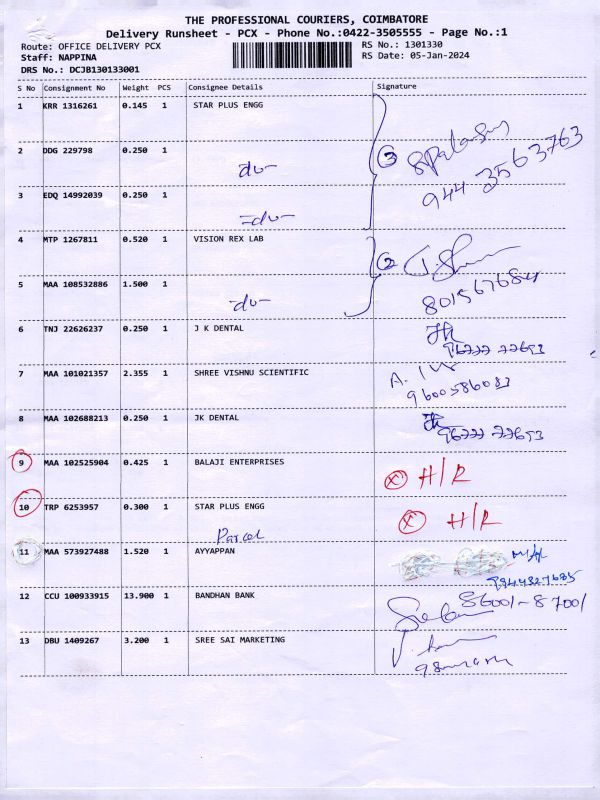 THE PROFESSIONAL COURIERS, COIMBATORE
Delivery Runsheet - PCX - Phone No.:0422-3505555 - Page No.:1
Route: OFFICE DELIVERY PCX RS No.: 1301330
Staff: NAPPINA RS Date: 05-Jan-2024
DRS No.: DCJB130133001
S No Consignment No Weight PCS Consignee Details Signature
1 KRR 1316261 0.145 1 STAR PLUS ENGG
2 DDG 229798 0.250 1 -do- 3
944 3563763
3 EDQ 14992039 0.250 1 -do-
4 MTP 1267811 0.520 1 VISION REX LAB 2
5 MAA 108532886 1.500 1 -do-
6 TNJ 22626237 0.250 1 J K DENTAL
7 MAA 101021357 2.355 1 SHREE VISHNU SCIENTIFIC
9600586083
8 MAA 102688213 0.250 1 JK DENTAL
9 MAA 102525904 0.425 1 BALAJI ENTERPRISES X H/R
10 TRP 6253957 0.300 1 STAR PLUS ENGG X H/R
Parcel
11 MAA 573927488 1.520 1 AYYAPPAN
9944827685
12 CCU 100933915 13.900 1 BANDHAN BANK 86001-87001
13 DBU 1409267 3.200 1 SREE SAI MARKETING